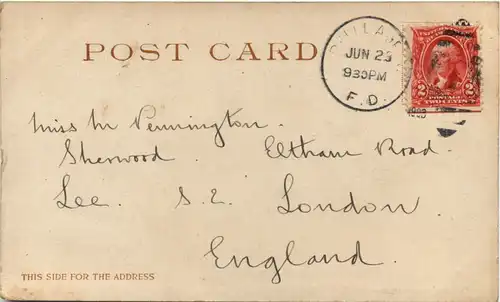 POST CARD
JUN 23
930PM
F.D.
2 2
POSTAGE
TWO CENTS
Miss M Pennington.
Sherwood Eltham Road.
Lee. S.E. London.
England.
THIS SIDE FOR THE ADDRESS